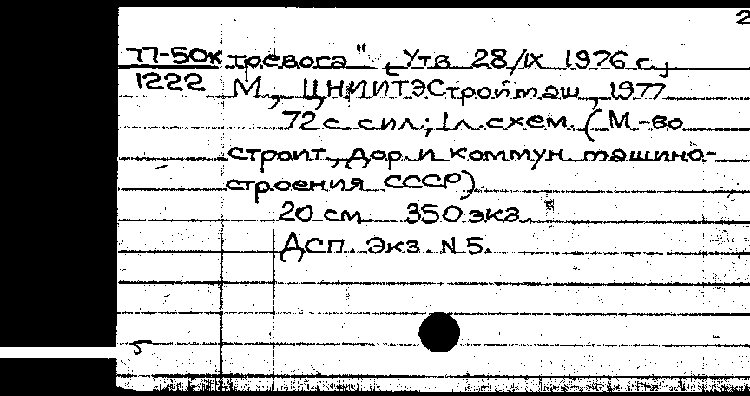 2
77-50к тревога", Утв 28/IX 1976 г.,
1222 М., ЦНИИТЭСтроймаш, 1977
72 с с ил; 1 л. схем. (М-во
строит., дор. и коммун. машино-
строения СССР)
20 см 350 экз.
Дсп. Экз. N 5.
5